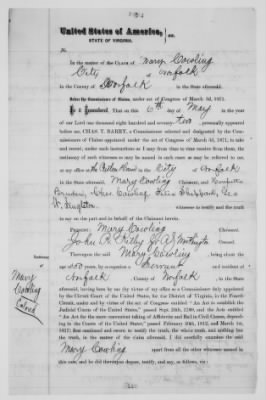 United States of America, } ss.
STATE OF VIRGINIA.
In the matter of the CLAIM of Mary Cowling
City of Norfolk
County of Norfolk in the State aforesaid.
Before the Commissioners of Claims, under act of Congress of March 3d, 1871.
Be it Remembered, That on this 6th day of May in the year
of our Lord one thousand eight hundred and seventy two personally appeared
before me, CHAS. T. BARRY, a Commissioner selected and designated by the
Commissioners of Claims appointed under the act of Congress of March 3d, 1871, to take
and record, under such instructions as I may from time to time receive from them, the
testimony of such witnesses as may be named in such cases as may be referred to me, at
my office in the City of Norfolk
in the State aforesaid, Mary Cowling Claimant, and
Cowling
witnesses, to testify and the truth
to say on the part and behalf of the Claimant herein.
PRESENT: Mary Cowling Claimant,
John R. Counsel.
Thereupon the said Mary Cowling being about the
age of 50 years, by occupation a Servant and resident of
Norfolk County of Norfolk in the State
aforesaid, having been by me by virtue of my office as a Commissioner fully appointed
by the Circuit Court of the United States, for the District of Virginia, in the Fourth
Circuit, under and by virtue of the act of Congress entitled "An Act to establish the
Judicial Courts of the United States," passed Sept 24th, 1789, and the Act entitled "An
Act for the more convenient taking of Affidavits and Bail in Civil Causes, depending
in the Courts of the United States," passed February 20th, 1812, and March 1st,
1817; first cautioned and sworn to testify the truth, the whole truth, and nothing but
the truth, in the matter of the claim aforesaid, I did carefully examine the said
Mary Cowling apart from all the other witnesses named in
this case, and he did thereupon depose, testify, and say, as follows, viz:
Testimony
Mary
Cowling
Colored